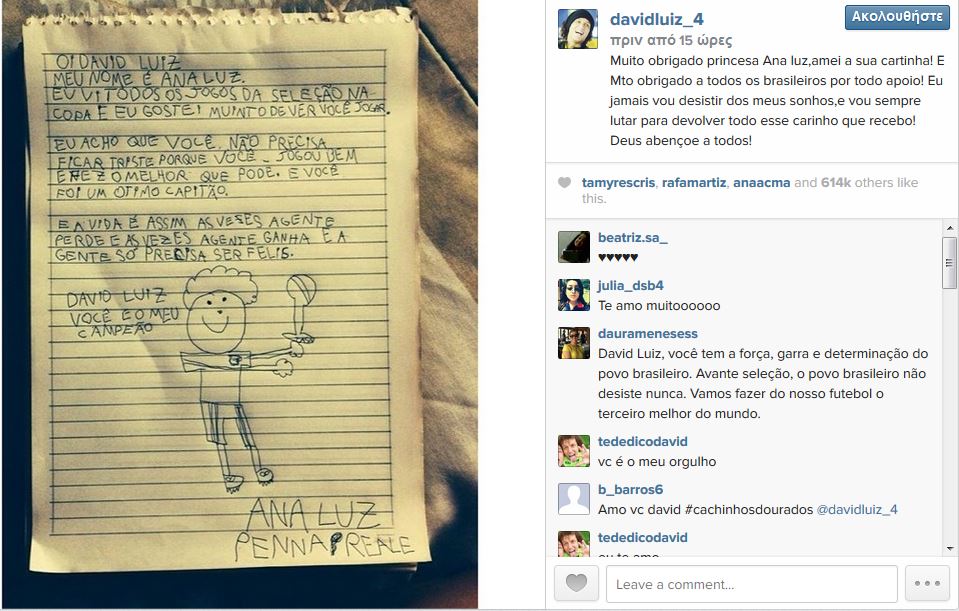 OI DAVID LUIZ
MEU NOME É ANA LUZ.
EU VI TODOS OS JOGOS DA SELEÇÃO NA
COPA E EU GOSTEI MUINTO DE VER VOCÊ JOGAR.
EU ACHO QUE VOCÊ NÃO PRECISA
FICAR TRISTE PORQUE VOCÊ JOGOU BEM
E FEZ O MELHOR QUE PODE. E VOCÊ
FOI UM OTIMO CAPITÃO.
E A VIDA É ASSIM AS VESES AGENTE
PERDE E AS VEZES AGENTE GANHA E A
GENTE SÓ PRECISA SER FELIS.
DAVID LUIZ
VOCÊ É O MEU
CAMPEÃO
ANA LUZ
PENNA PREALE
davidluiz_4
Ακολουθήστε
πριν από 15 ώρες
Muito obrigado princesa Ana luz,amei a sua cartinha! E
Mto obrigado a todos os brasileiros por todo apoio! Eu
jamais vou desistir dos meus sonhos,e vou sempre
lutar para devolver todo esse carinho que recebo!
Deus abençoe a todos!
tamyrescris, rafamartiz, anaacma and 614k others like
this.
beatriz.sa_
♥♥♥♥♥
julia_dsb4
Te amo muitoooooo
dauramenesess
David Luiz, você tem a força, garra e determinação do
povo brasileiro. Avante seleção, o povo brasileiro não
desiste nunca. Vamos fazer do nosso futebol o
terceiro melhor do mundo.
tededicodavid
vc é o meu orgulho
b_barros6
Amo vc david #cachinhosdourados @davidluiz_4
tededicodavid
eu te amo
Leave a comment...